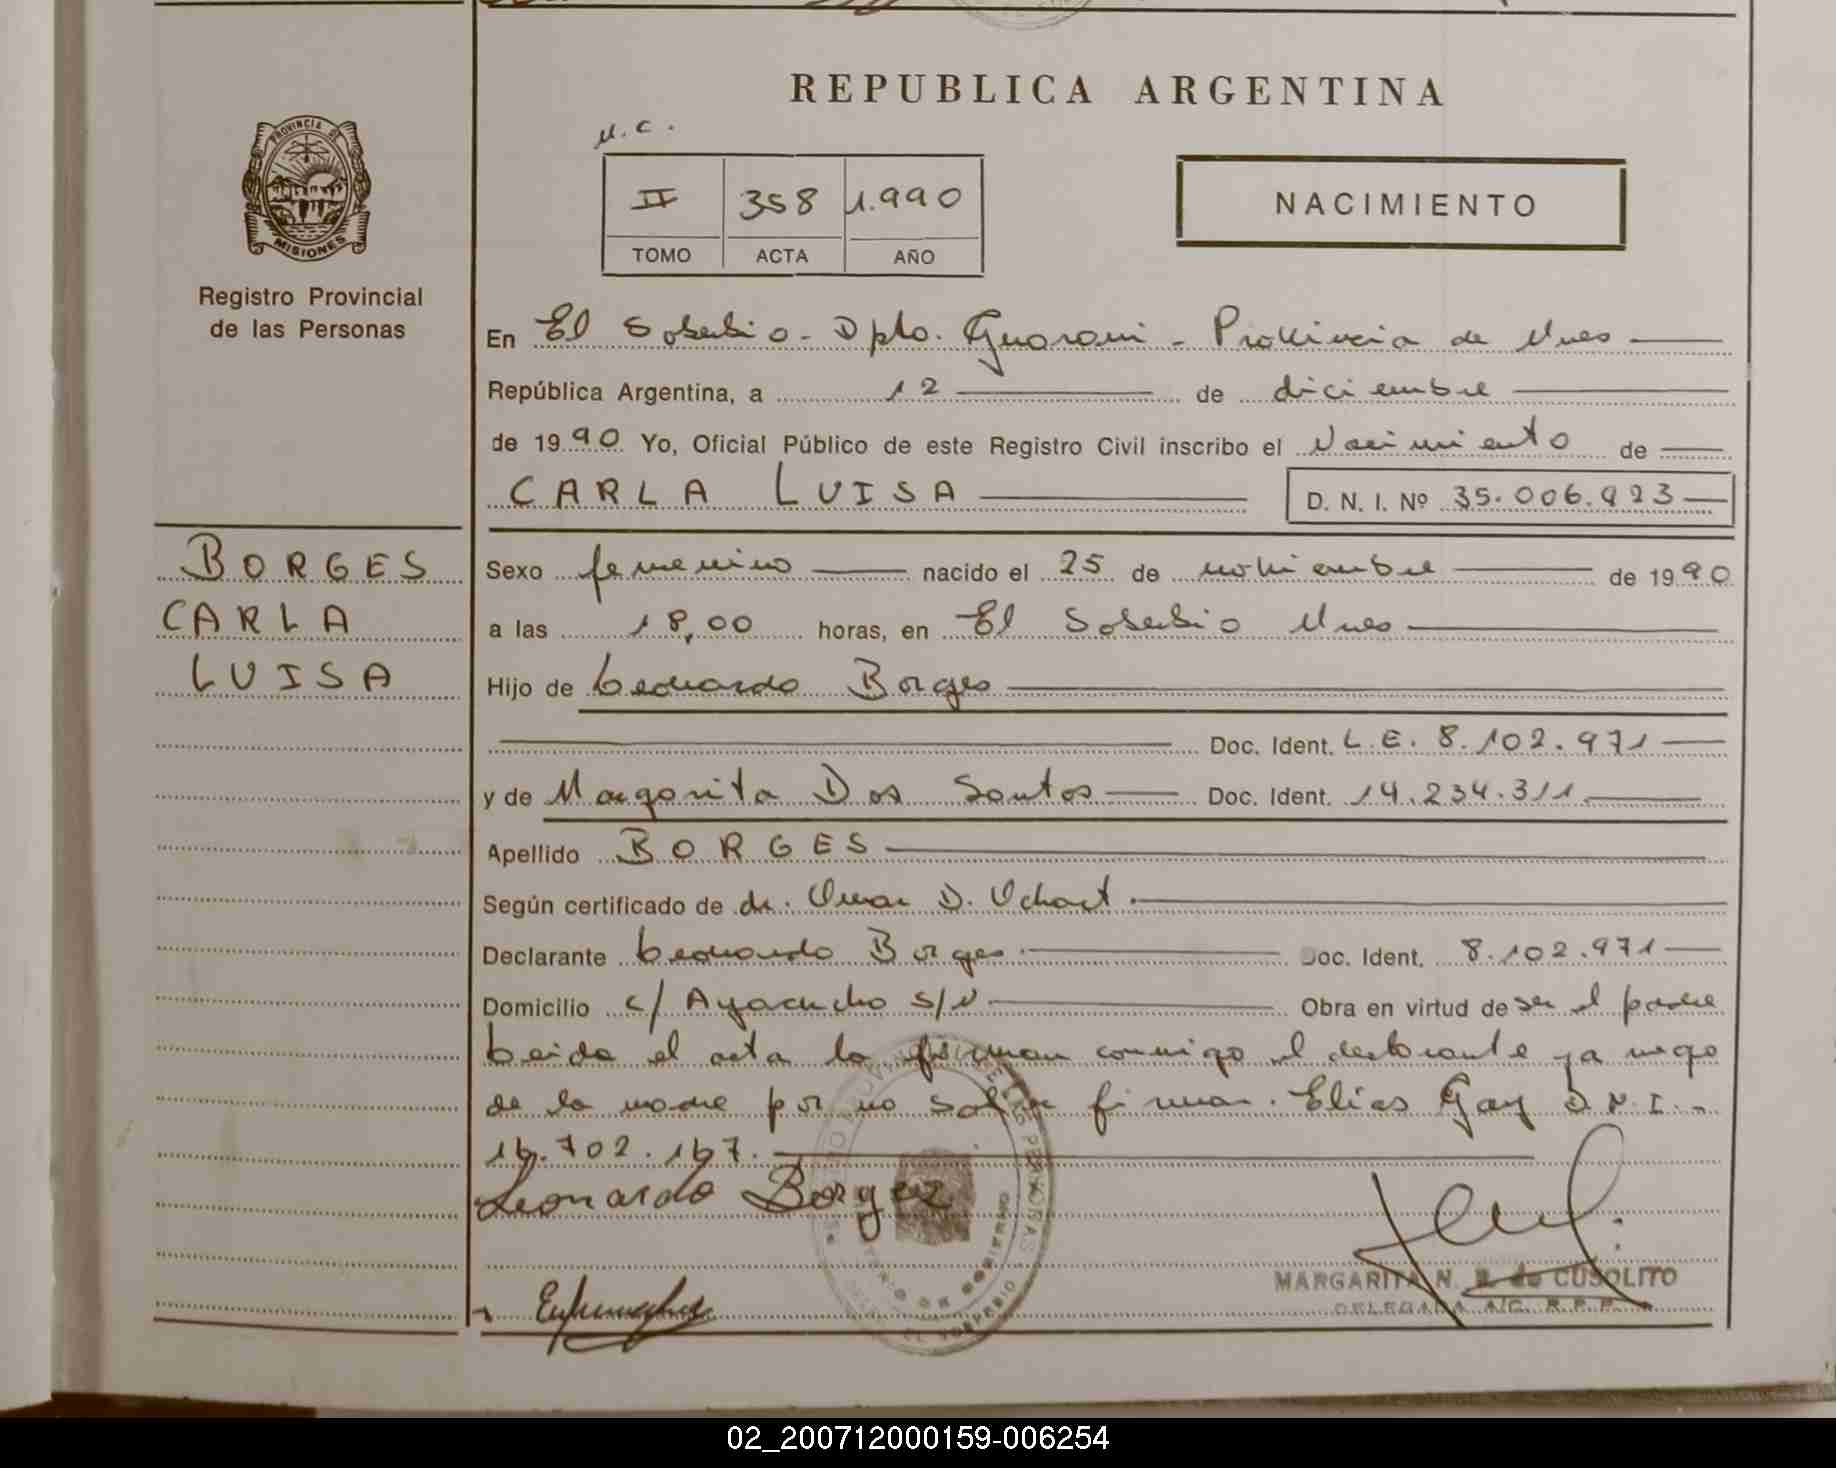 REPUBLICA ARGENTINA
PROVINCIA DE
MISIONES
Registro Provincial
de las Personas
N.C.
II 358 1.990
TOMO ACTA AÑO
NACIMIENTO
En El Soberbio - Dpto. Guarani - Provincia de Mnes
República Argentina, a 12 de diciembre
de 1990 Yo, Oficial Público de este Registro Civil inscribo el Nacimiento de
CARLA LUISA D. N. I. Nº 35.006.923
BORGES
CARLA
LUISA
Sexo femenino nacido el 25 de noviembre de 1990
a las 18,00 horas, en El Soberbio Mnes
Hijo de Leonardo Borges
Doc. Ident. L.E. 8.102.971
y de Margarita Dos Santos Doc. Ident. 14.234.311
Apellido BORGES
Según certificado de dr. Omar D.
Declarante Leonardo Borges Doc. Ident. 8.102.971
Domicilio c/ Ayacucho s/n Obra en virtud de ser el padre
Leida el acta la firman conmigo el declarante y a ruego
de la madre por no saber firmar. Elias Gay D.N.I.-
16.702.167.
Leonardo Borges
MARGARITA N. de CUSOLITO
DELEGADA A/C. R.P.P.
02_200712000159-006254